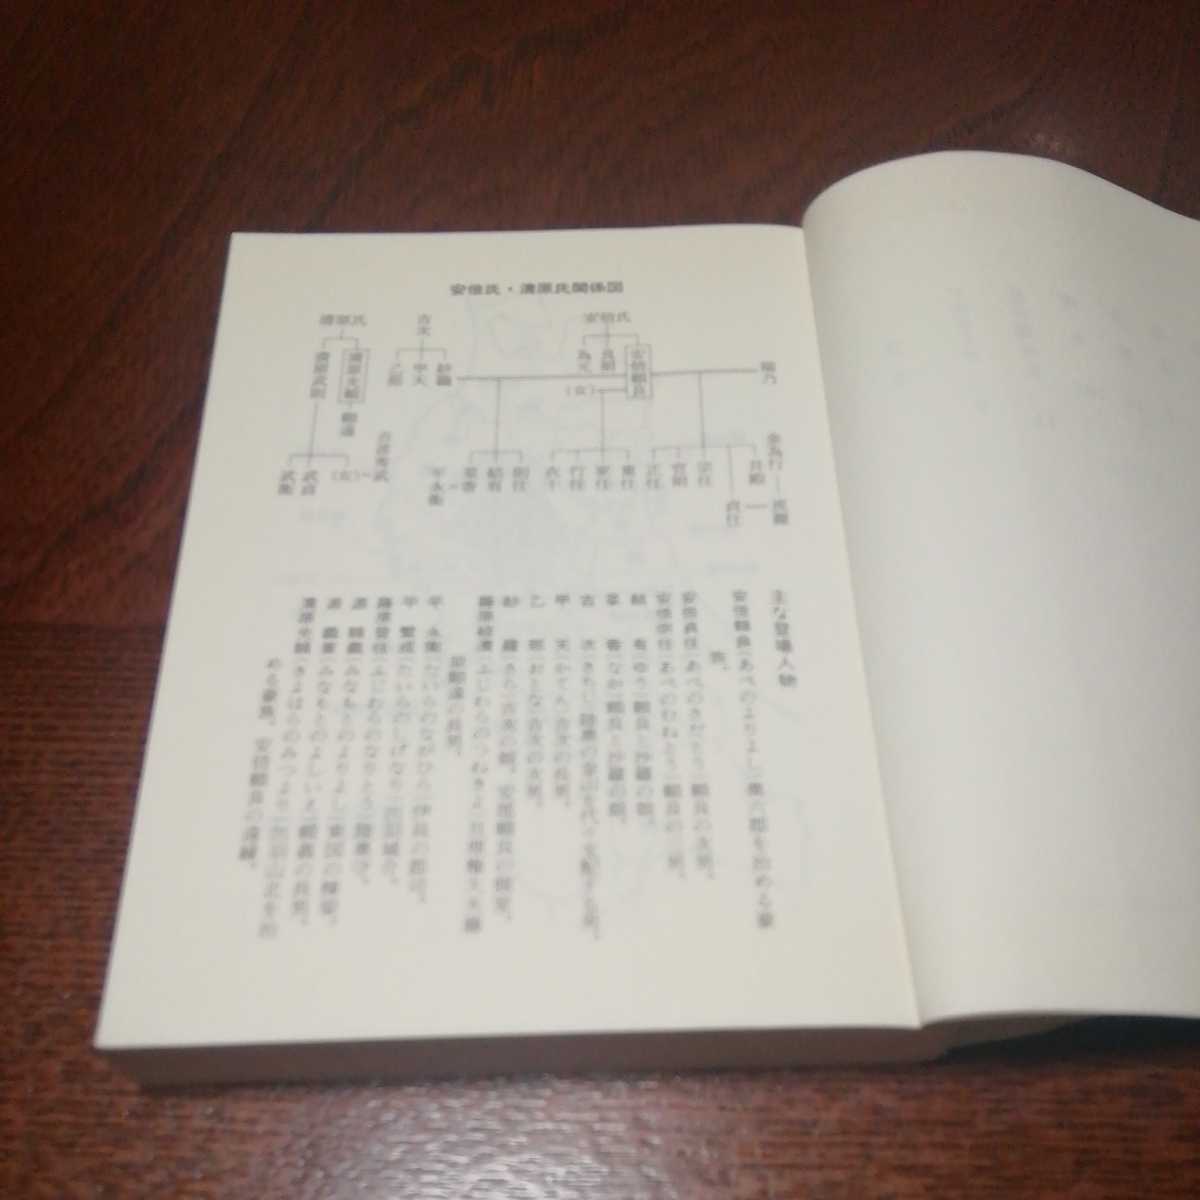 安倍氏・清原氏関係図
安倍氏
吉次
清原氏
安倍頼良
良昭
為元
(女)
紗羅
甲天
乙那
清原光頼
清原武則
頼遠
金為行
貞任
宗任
官照
正任
重任
家任
行任
則任
結有
菜香
平永衡
(女)
武貞
武衡
主な登場人物
安倍頼良(あべのよりよし)奥六郡を治める豪
族。
安倍貞任(あべのさだとう)頼良の次男。
安倍宗任(あべのむねとう)頼良の三男。
結 有(ゆう)頼良と沙羅の娘。
菜 香(なか)頼良と沙羅の娘。
吉 次(きちじ)
甲 天(かてん)吉次の長男。
乙 那(おとな)吉次の次男。
紗 羅(さら)吉次の娘。安倍頼良の側室。
藤原経清(ふじわらのつねきよ)亘理権大夫藤
原頼遠の長男。
平 永衡(たいらのながひら)伊具の郡司。
平 繁成(たいらのしげなり)出羽城介。
藤原登任(ふじわらのなりとう)陸奥守。
源 頼義(みなもとのよりよし)東国の棟梁。
源 義家(みなもとのよしいえ)頼義の長男。
清原光頼(きよはらのみつより)出羽山北を治
める豪族。安倍頼良の遠縁。